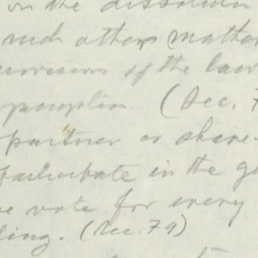 on the dissolution
such other matter
provisions of the law
(Sec. 7
partner or share-
participate in the ge
vote for every
ling. (Sec. 79)